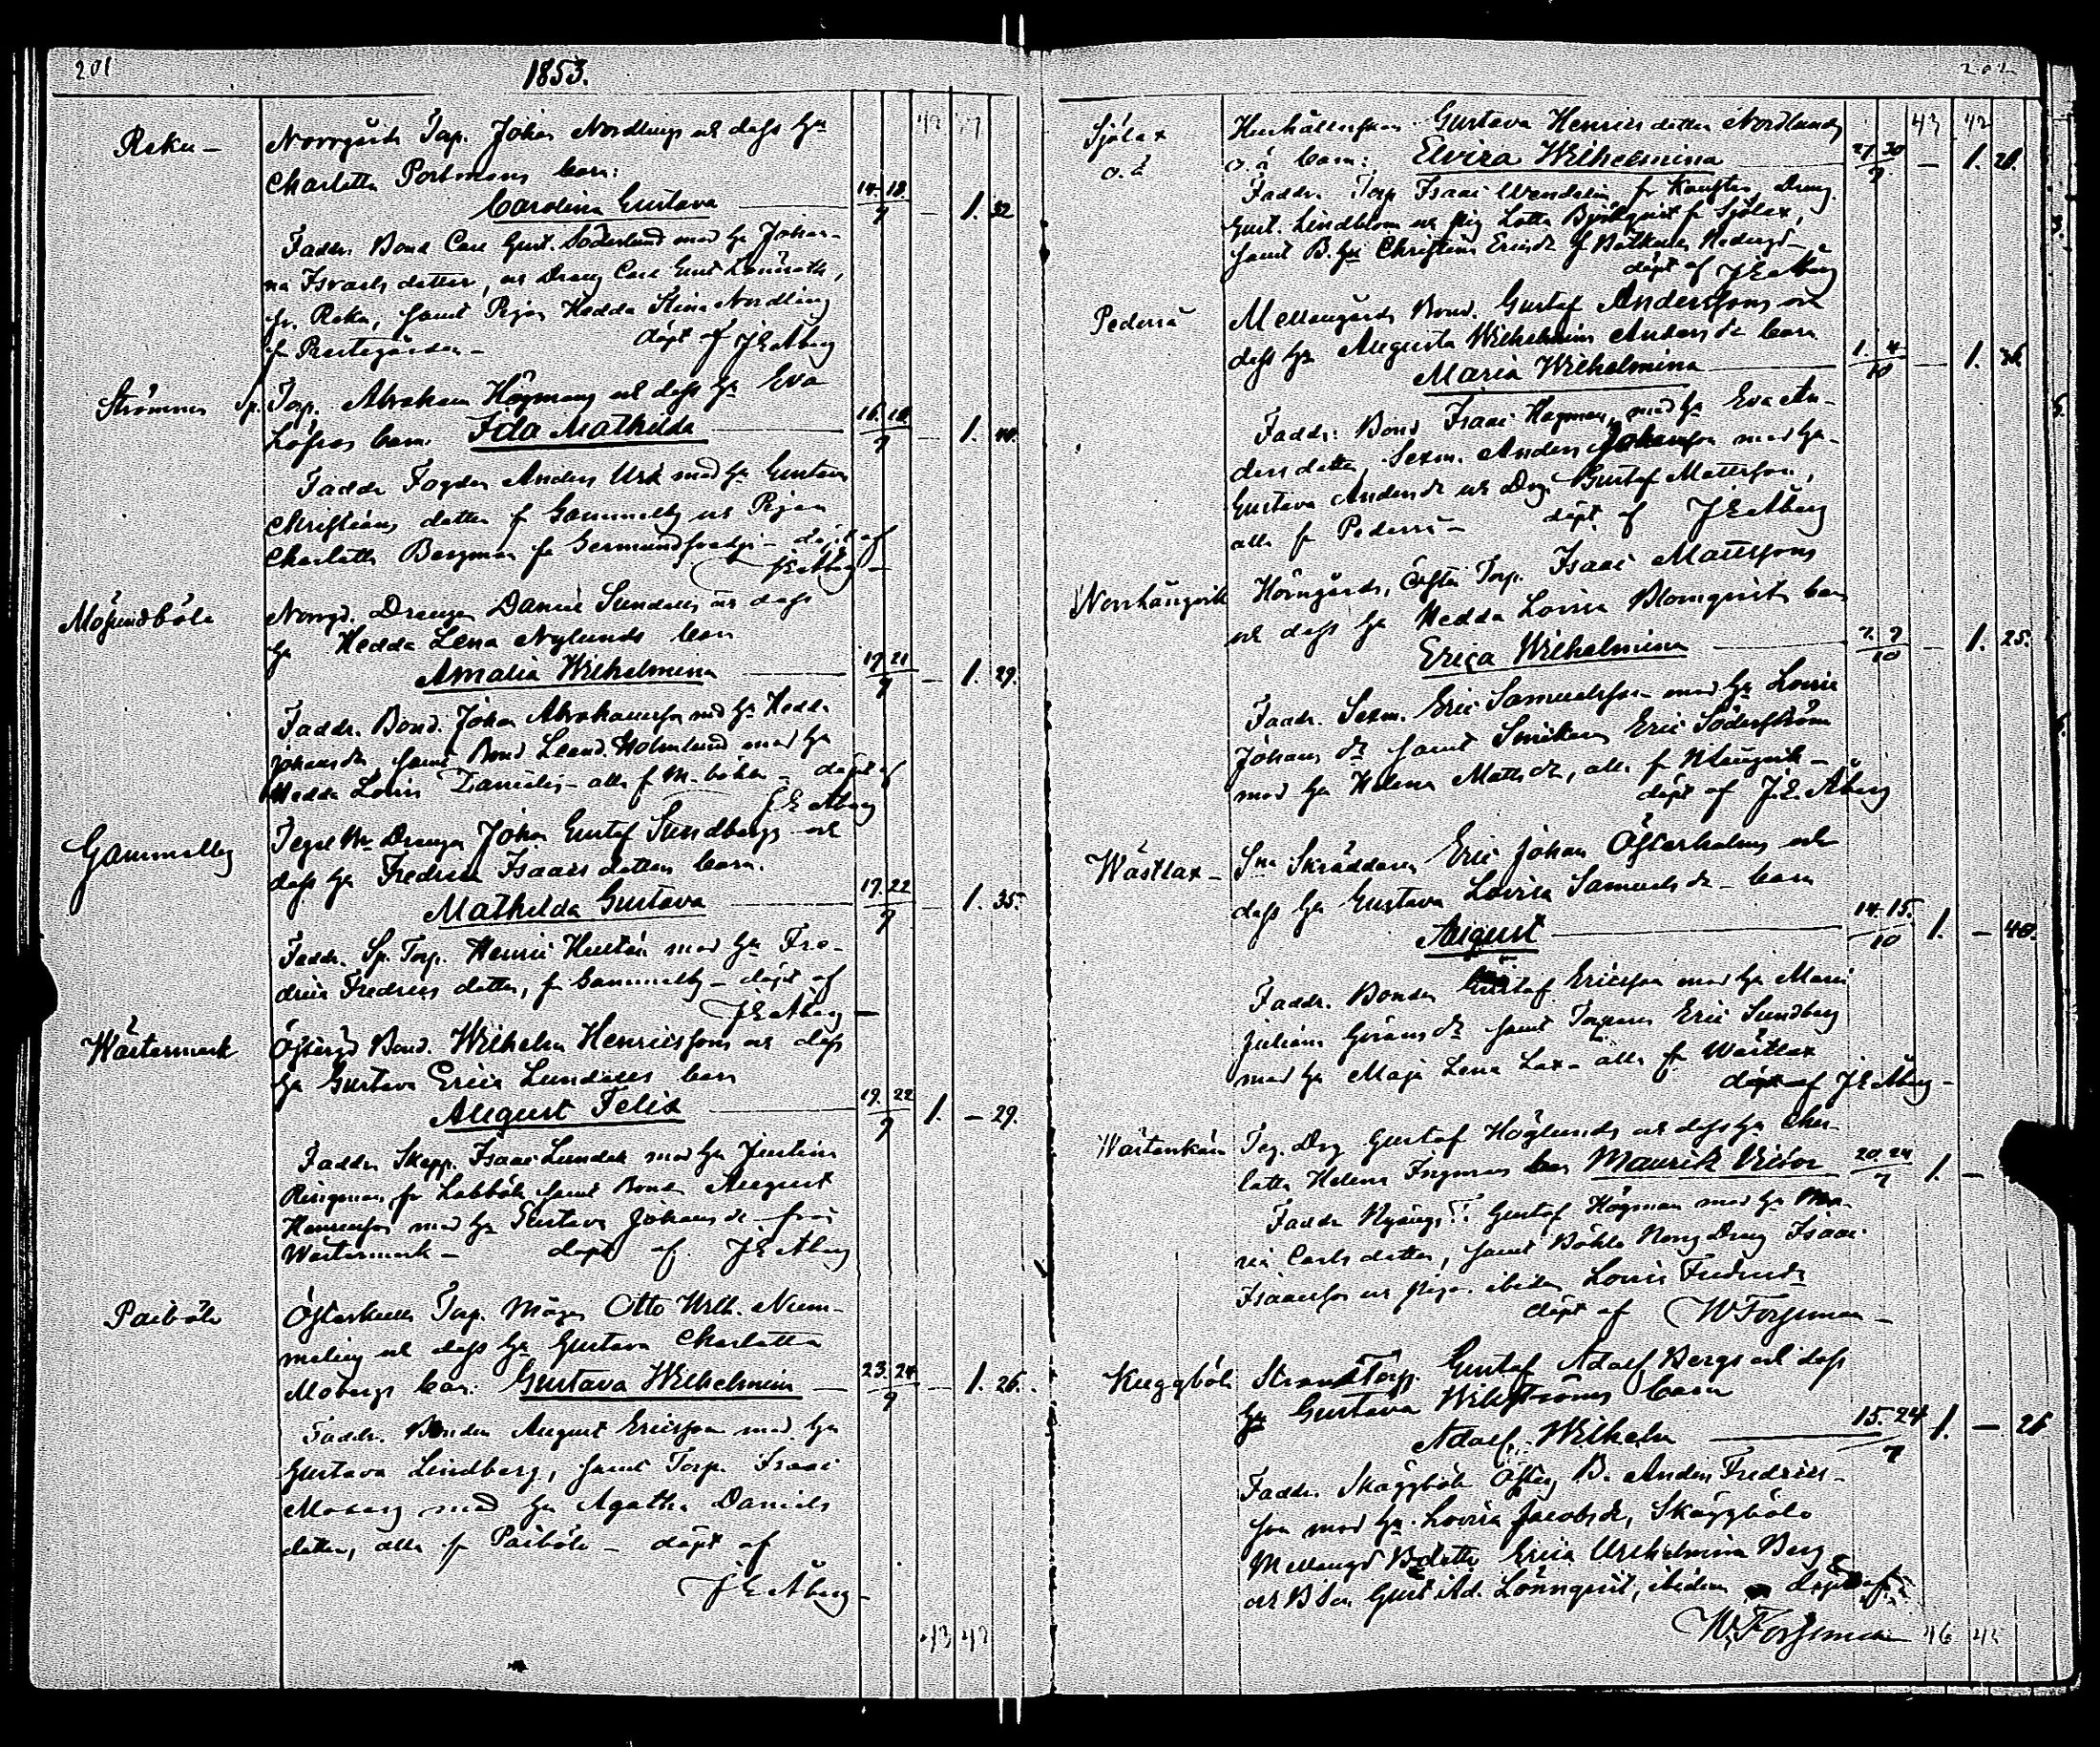 201
1853.
Reku –
Norrgårds Torp. Johan Nordlings och dess hu
Charlotta Portmans barn:
Carolina Gustava 14 18. 9 – 1. 32
Faddr. Bond Carl Gust. Söderlund med hu Johan-
na Israels detter, och Dreng Carl Gust Lönroth,
fr. Reku, samt Pigan Hedda Stina Nordling
fr Prestegården – döpt af J E Åberg
Strömmen Sp. Torp. Abraham Högmans och dess hu Eva
Löfros barn. Ida Mathilda 16. 18. 9 – 1.
Faddr Fogden Anders Ark med hu Gustava
Christians detter fr Gammelby och Pigan
Charlotta Bergman fr Germundsvedja – döpt af
J E Åberg –
Mösundböle
Norrgd. Drengen Daniel Sundells och dess
hu Hedda Lena Nylunds barn
Amalia Wilhelmina 17 21 9 – 1. 29.
Faddr. Bond. Johan Abrahamsson med hu Hedda
Johansdr samt Bond Leand. Holmlund med hu
Hedda Lovis Danielsdr – alla f M-böle – döpt af
J E Åberg
Gammelby
Tegel Br Drengen Johan Gustaf Sundbergs och
dess hu Fredrica Isaacs detters barn.
Mathilda Gustava 19. 22 9 – 1. 35.
Faddr. Sp. Torp. Henric Hultin med hu Fre-
drica Fredrics detter, fr Gammelby – döpt af
J E Åberg –
Wästermark
Östergd Bond. Wilhelm Henricssons och dess
hu Gustava Erica Lundells barn
August Felix 19. 22 9 1. – 29.
Faddr Skepp. Isaac Lundell med hu Justina
Ringman fr Labböle samt Bond August
Henricsson med hu Gustava Johansdr från
Wästermark – döpt af J E Åberg
Paiböle
Österkulla Torp. Måg Otto Wilh. Num-
melin och dess hu Gustava Charlotta
Mobergs barn. Gustava Wilhelmina – 23. 24 9 – 1. 26.
Faddr. Bonden August Ericsson med hu
Gustava Lindberg, samt Torp. Isaac
Moberg med hu Agatha Daniels
detter, alla fr Paiböle – döpt af
J E Åberg –
43 42
202
43 42
Sjölax
o. ä
Hushållerskan Gustava Henrics detter Nordlunds
o. ä barn: Elvira Wilhelmina 27 30 9 – 1. 28.
Faddr. Torp Isaac Wendelin fr Dreng
Gust. Lindblom och pig Lotta Björkqvist fr Sjölax,
samt B. hu Christina Ericsdr
döpt af J E Åberg
Pederså
Mellangårds Bond. Gustaf Anderssons och
dess hu Augusta Wilhelmina Andersdr barn
Maria Wilhelmina 1. 4 10 – 1. 36
Faddr. Bond Isaac Hagman med hu Eva An-
ders detter, Sexm. Anders Johansson med hu
Gustava Andersdr och Drg. Gustaf Mattsson,
alla fr Pederså – döpt af J E Åberg
Norrlångvik
Hörngårds, Torp. Isaac Mattssons
och dess hu Hedda Lovisa Blomqvists barn
Erica Wilhelmina 7. 9 10 – 1. 25.
Faddr. Sexm. Eric Samuelsson med hu Lovisa
Johans dr samt Snickaren Eric Söderström
med hu Helena Mattsdr, alla fr Nlångvik –
döpt af J. E. Åberg
Wästlax –
Sna Skräddaren Eric Johan Österholms och
dess hu Gustava Lovisa Samuelsdr – barn
August 14. 15. 10 1. – 40.
Faddr. Bonden Gustaf Ericsson med hu Maria
Juliana Göransdr samt Torparen Eric Sundberg
med hu Maja Lena Lax – alla fr Wästlax
döpt af J E Åberg –
Wästankärr
Teg. Drg Gustaf Höglunds och dess hu Char-
lotta Helena Ingmans barn Maurits Victor 20. 24 9 1. –
Faddr Gustaf Högman med hu Ma-
ria Carls detter, samt Böhle Norrg Dreng Isaac
Isaacsson och piga. ibidem Lovisa Fredricsdr
döpt af W Forssman –
Kuggböle
Strand Torp. Gustaf Adolf Bergs och dess
hu Gustava Wilhströms barn
Adolf Wilhelm 15. 24 9 1. – 26
Faddr. Skäggböle Österg B. Anders Fredrics-
son med hu Lovisa Jacobsdr, Skäggböle
Mellangd B detter Erica Wilhelmina Berg
och B Son Gust Ad. Lönnqvist, ibidem döpt af
W. Forssman
46 42